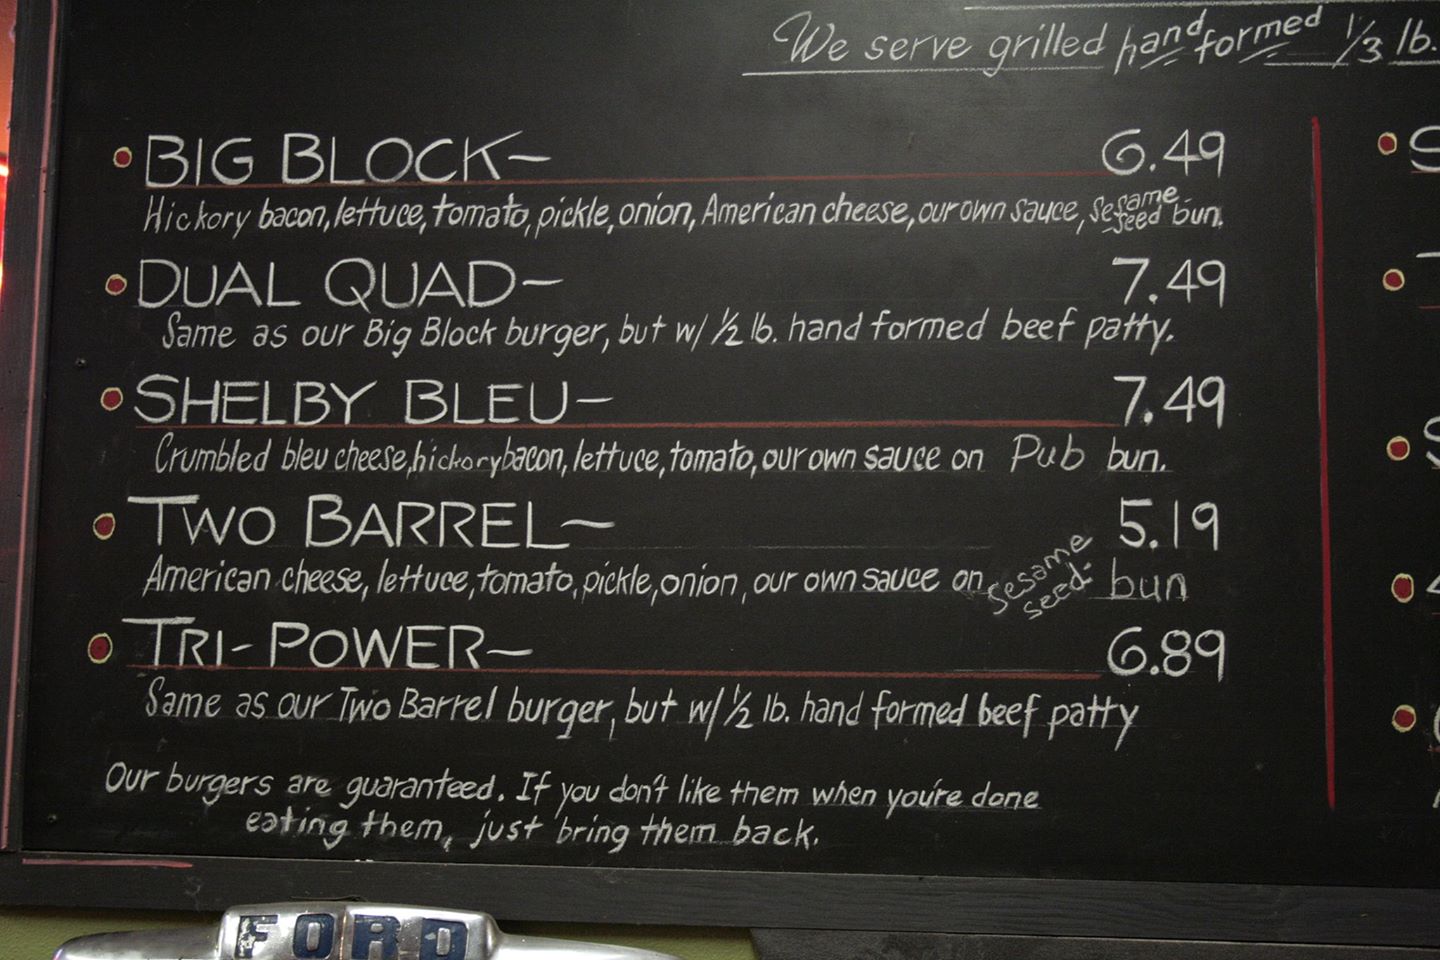 We serve grilled hand formed 1/3 lb.
BIG BLOCK— 6.49
Hickory bacon, lettuce, tomato, pickle, onion, American cheese, our own sauce, sesame seed bun.
DUAL QUAD— 7.49
Same as our Big Block burger, but w/ 1/2 lb. hand formed beef patty.
SHELBY BLEU— 7.49
Crumbled bleu cheese, hickory bacon, lettuce, tomato, our own sauce on Pub bun.
TWO BARREL— 5.19
American cheese, lettuce, tomato, pickle, onion, our own sauce on sesame seed bun
TRI-POWER— 6.89
Same as our Two Barrel burger, but w/ 1/2 lb. hand formed beef patty
Our burgers are guaranteed. If you don't like them when you're done
eating them, just bring them back.
FORD